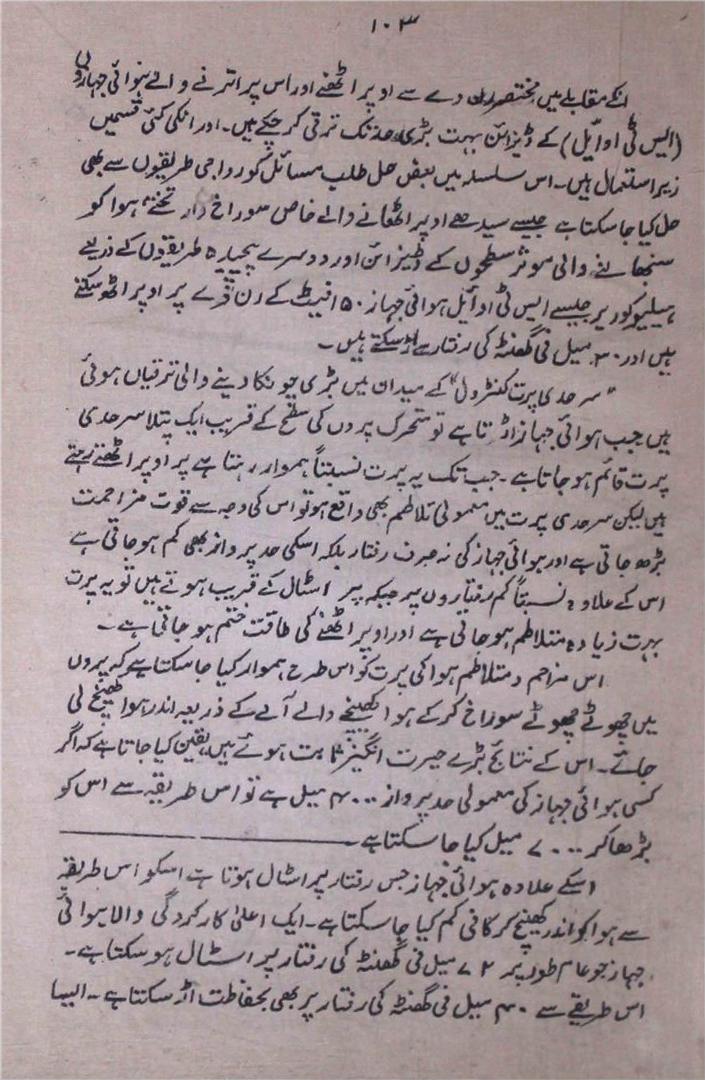 ۱۰۳
انکے مقابلے میں مختصر رن وے سے اوپر اٹھنے اور اس پر اترنے والے ہوائی جہازوں
(ایس ٹی او ایل) کے ڈیزائن بہت بڑی حد تک ترقی کر چکے ہیں۔ اور انکی کئی قسمیں
زیر استعمال ہیں۔ اس سلسلہ میں بعض حل طلب مسائل کو رواجی طریقوں سے بھی
حل کیا جا سکتا ہے جیسے سیدھے اوپر اٹھانے والے خاص سوراخ دار تختے، ہوا کو
سنبھالنے والی موثر سطحوں کے ڈیزائن اور دوسرے پیچیدہ طریقوں کے ذریعے
ہیلیو کوریر جیسے ایس ٹی او ایل ہوائی جہاز ۵۰ فیٹ کے رن وے پر اوپر اٹھ سکتے
ہیں اور ۳۰ میل فی گھنٹہ کی رفتار سے اڑ سکتے ہیں۔
"سرحدی پرت کنٹرول" کے میدان میں بڑی چونکا دینے والی ترقیاں ہوئی
ہیں جب ہوائی جہاز اڑتا ہے تو متحرک پروں کی سطح کے قریب ایک پتلا سرحدی
پرت قائم ہو جاتا ہے۔ جب تک یہ پرت نسبتاً ہموار رہتا ہے پر اوپر اٹھتے رہتے
ہیں لیکن سرحدی پرت میں معمولی تلاطم بھی واقع ہو تو اس کی وجہ سے قوت مزاحمت
بڑھ جاتی ہے اور ہوائی جہاز کی نہ صرف رفتار بلکہ اسکی حد پرواز بھی کم ہو جاتی ہے
اس کے علاوہ نسبتاً کم رفتاروں پر جبکہ پر اسٹال کے قریب ہوتے ہیں تو یہ پرت
بہت زیادہ متلاطم ہو جاتی ہے اور اوپر اٹھنے کی طاقت ختم ہو جاتی ہے۔
اس مزاحم و متلاطم ہوا کی پرت کو اس طرح ہموار کیا جا سکتا ہے کہ پروں
میں چھوٹے چھوٹے سوراخ کر کے ہوا کھینچنے والے آلے کے ذریعہ اندر ہوا کھینچ لی
جائے۔ اس کے نتائج بڑے حیرت انگیز ثابت ہوئے ہیں، یقین کیا جاتا ہے کہ اگر
کسی ہوائی جہاز کی معمولی حد پرواز ۴۰۰۰ میل ہے تو اس طریقہ سے اس کو
بڑھا کر ۷۰۰۰ میل کیا جا سکتا ہے۔
اسکے علاوہ ہوائی جہاز جس رفتار پر اسٹال ہوتا ہے اسکو اس طریقہ
سے ہوا کو اندر کھینچ کر کافی کم کیا جا سکتا ہے۔ ایک اعلیٰ کارکردگی والا ہوائی
جہاز جو عام طور پر ۷۲ میل فی گھنٹہ کی رفتار پر اسٹال ہو سکتا ہے۔
اس طریقے سے ۴۰ میل فی گھنٹہ کی رفتار پر بھی بحفاظت اڑ سکتا ہے۔ ایسا